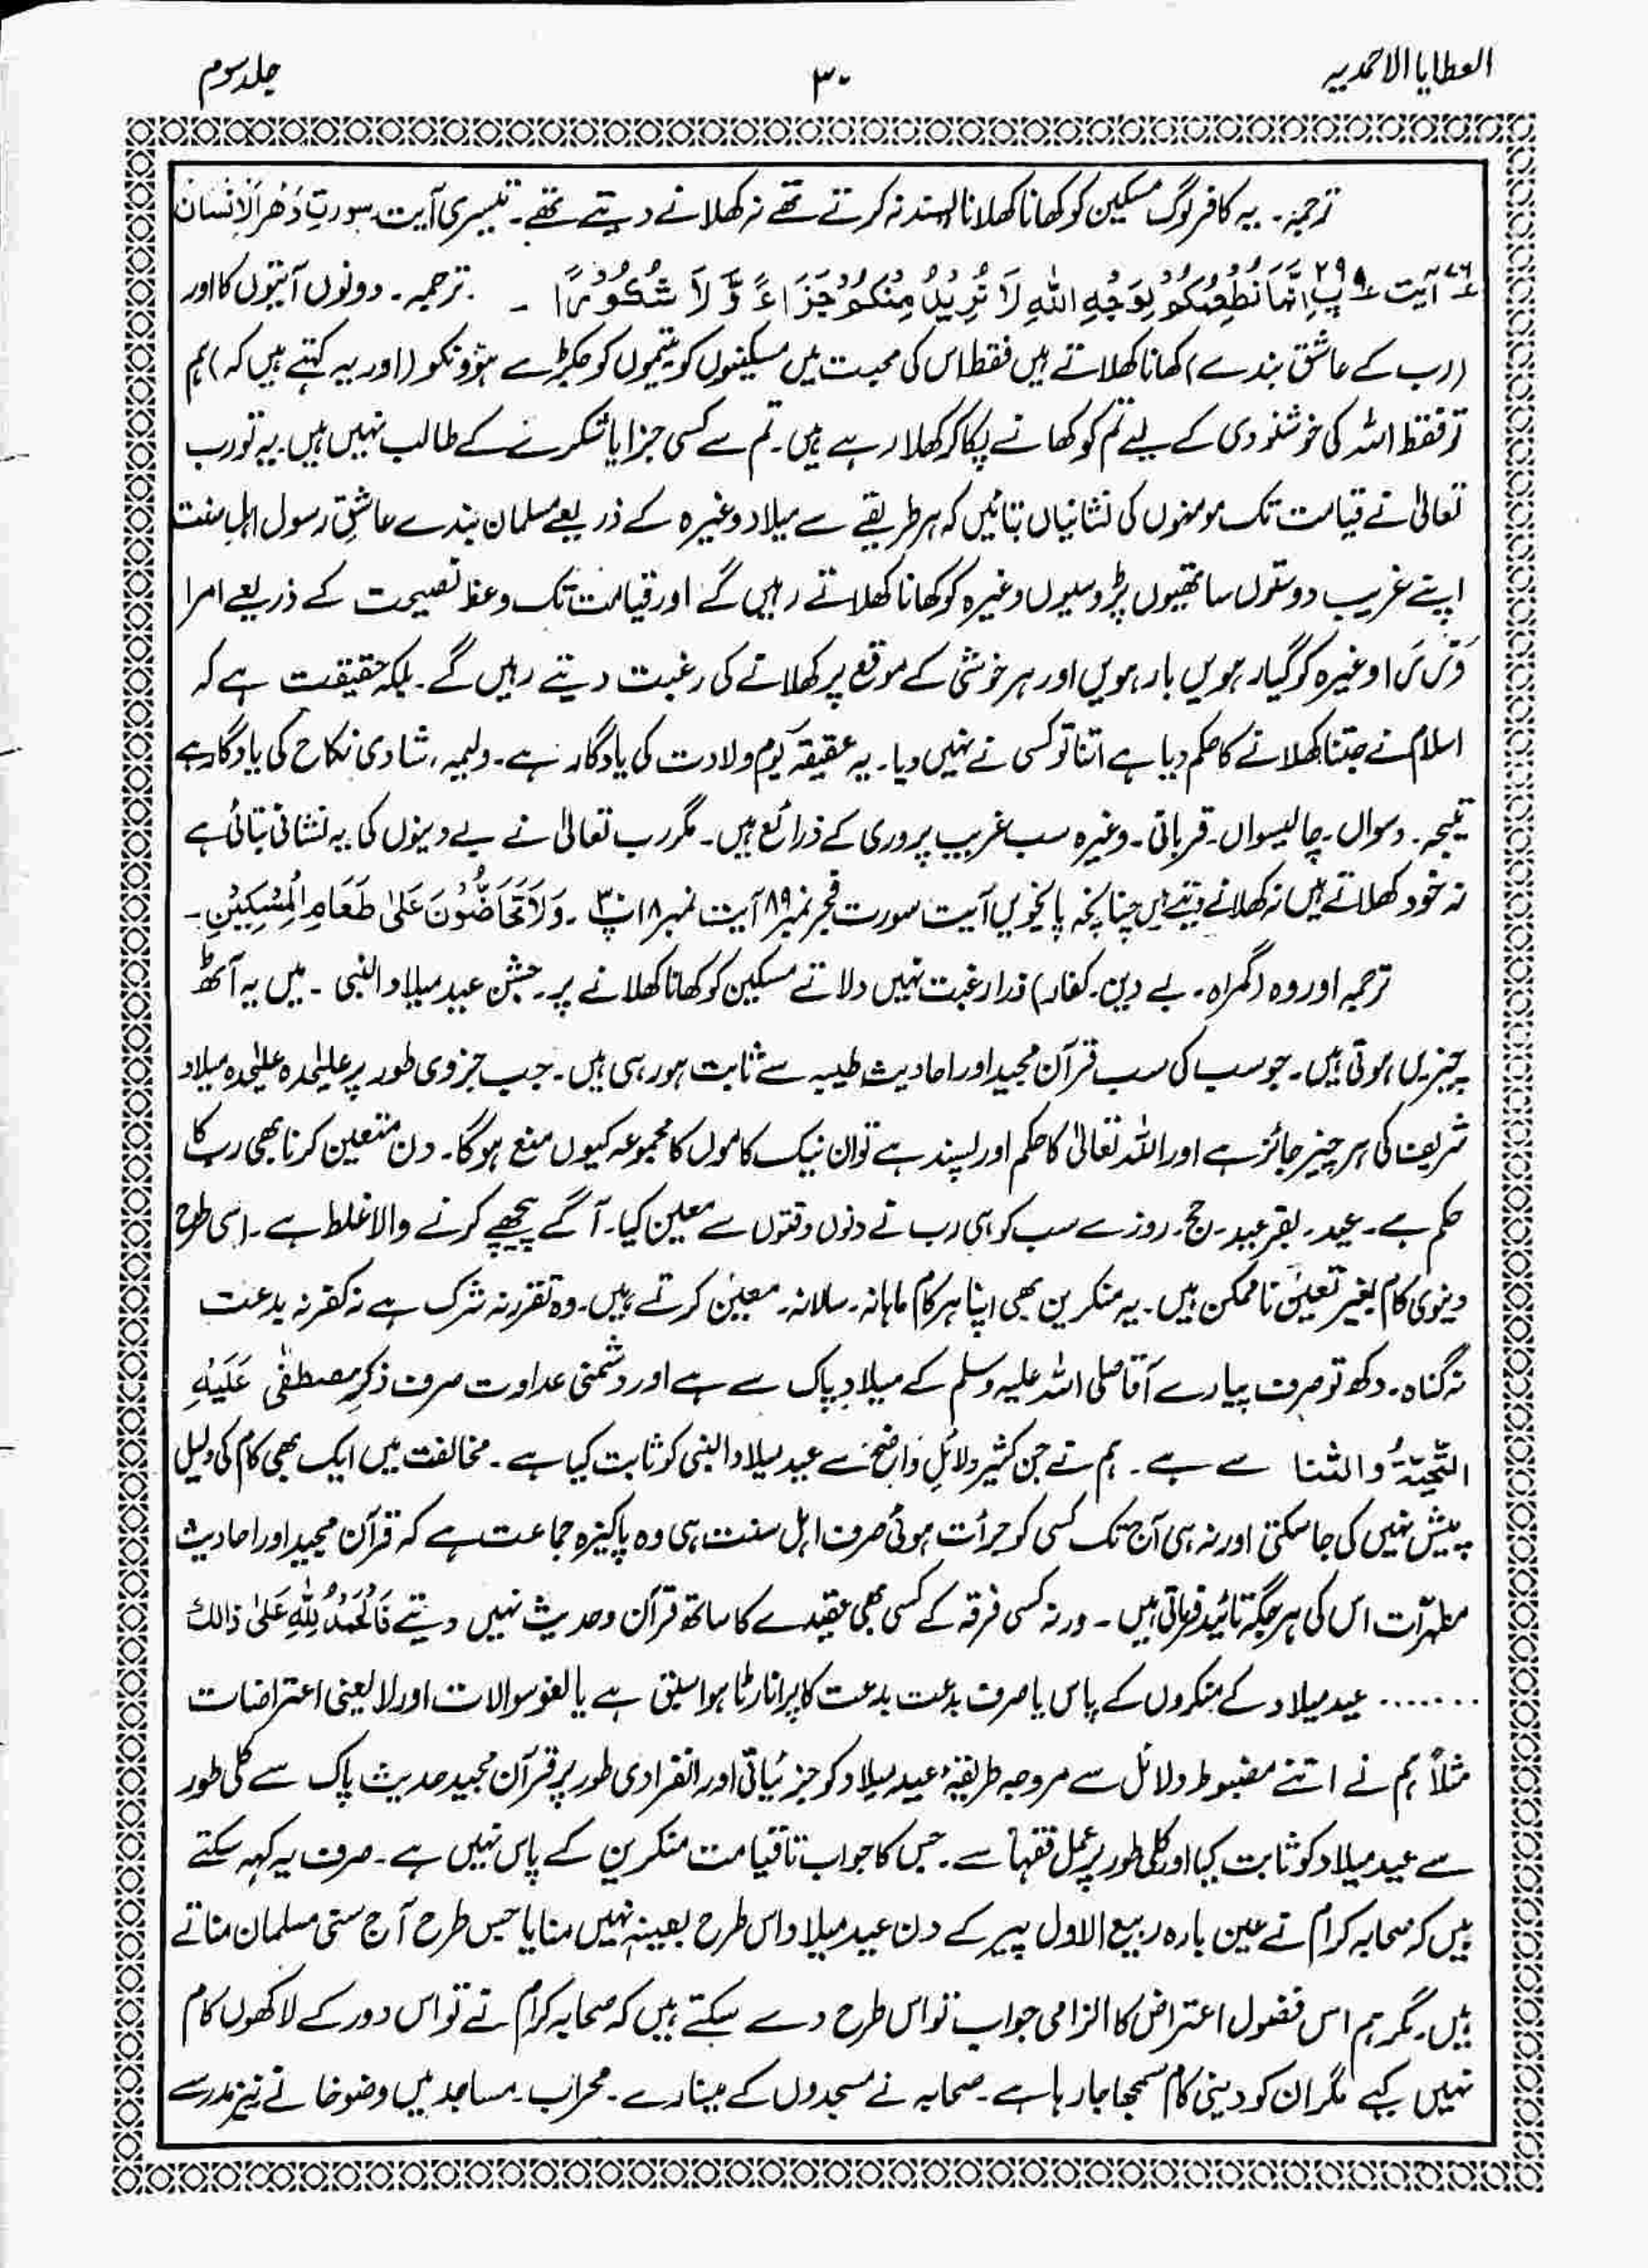 العطایا الاحمدیہ
۳۰
جلد سوم
ترجمہ۔ یہ کافر لوگ مسکین کو کھانا کھلانا پسند نہ کرتے تھے نہ کھلانے دیتے تھے۔ تیسری آیت سورتِ دَھْر اَلْاِنْسَان
۷۶ آیت ۹ پ ۲۹ اِنَّمَا نُطْعِمُكُمْ لِوَجْهِ اللّٰهِ لَا نُرِيْدُ مِنْكُمْ جَزَاءً وَّ لَا شُكُوْرًا ۔ ترجمہ۔ دونوں آیتوں کا اور
(رب کے عاشق بندے) کھانا کھلاتے ہیں فقط اس کی محبت میں مسکینوں کو یتیموں کو جکڑے ہوؤں کو (اور یہ کہتے ہیں کہ) ہم
تو فقط اللہ کی خوشنودی کے لیے تم کو کھانے پکا کر کھلا رہے ہیں۔ تم سے کسی جزا یا شکرنے کے طالب نہیں ہیں۔ یہ تو رب
تعالیٰ نے قیامت تک مومنوں کی نشانیاں بتائیں کہ ہر طریقے سے میلاد وغیرہ کے ذریعے مسلمان بندے عاشقِ رسول اہلِ سنت
اپنے غریب دوستوں ساتھیوں پڑوسیوں وغیرہ کو کھانا کھلاتے رہیں گے اور قیامت تک وعظ نصیحت کے ذریعے امرا
وغیرہ کو گیارہویں بارہویں اور ہر خوشی کے موقع پر کھلانے کی رغبت دیتے رہیں گے۔ بلکہ حقیقت ہے کہ
اسلام نے جتنا کھلانے کا حکم دیا ہے اتنا تو کسی نے نہیں دیا۔ یہ عقیقہ یَوم ولادت کی یادگار ہے۔ ولیمہ، شادی نکاح کی یادگار ہے
تیجہ۔ دسواں۔ چالیسواں۔ قربانی۔ وغیرہ سب غریب پروری کے ذرائع ہیں۔ مگر رب تعالیٰ نے بے دینوں کی یہ نشانی بتائی ہے
نہ خود کھلاتے ہیں نہ کھلانے دیتے ہیں چنانچہ پانچویں آیت سورت فجر نمبر ۸۹ آیت نمبر ۱۸ پ ۳۰۔ وَلَا تَحَاضُّوْنَ عَلٰى طَعَامِ الْمِسْكِيْنِ۔
ترجمہ اور وہ (گمراہ۔ بے دین۔ کفار) ذرا رغبت نہیں دلاتے مسکین کو کھانا کھلانے پر۔ جشن عید میلاد النبی ۔ میں یہ آٹھ
چیزیں ہوتی ہیں۔ جو سب کی سب قرآن مجید اور احادیث طیبہ سے ثابت ہو رہی ہیں۔ جب جزوی طور پر علیٰحدہ علیٰحدہ میلاد
شریف کی ہر چیز جائز ہے اور اللہ تعالیٰ کا حکم اور پسند ہے تو ان نیک کاموں کا مجموعہ کیوں منع ہو گا۔ دن متعین کرنا بھی رب کا
حکم ہے۔ عید۔ بقر عید۔ حج۔ روزے سب کو ہی رب نے دنوں وقتوں سے معین کیا۔ آگے پیچھے کرنے والا غلط ہے۔ اسی طرح
دنیوی کام بغیر تعین ناممکن ہیں۔ یہ منکرین بھی اپنا ہر کام ماہانہ۔ سالانہ۔ معین کرتے ہیں۔ وہ تقرر نہ شرک ہے نہ کفر نہ بدعت
نہ گناہ۔ دکھ تو صرف پیارے آقا صلی اللہ علیہ وسلم کے میلادِ پاک سے ہے اور دشمنی عداوت صرف ذکرِ مصطفٰی عَلَیْہِ
التَّحِیَّۃُ والثنا سے ہے۔ ہم نے جن کثیر دلائلِ واضح سے عید میلاد النبی کو ثابت کیا ہے۔ مخالفت میں ایک بھی کام کی دلیل
پیش نہیں کی جا سکتی اور نہ ہی آج تک کسی کو جرأت ہوئی صرف اہل سنت ہی وہ پاکیزہ جماعت ہے کہ قرآن مجید اور احادیث
مطہرات اس کی ہر جگہ تائید فرماتی ہیں۔ ورنہ کسی فرقہ کے کسی بھی عقیدے کا ساتھ قرآن و حدیث نہیں دیتے فَالْحَمْدُ لِلّٰہِ عَلیٰ ذالك
....... عید میلاد کے منکروں کے پاس یا صرف بدعت بدعت کا پرانا رٹا ہوا سبق ہے یا لغو سوالات اور لا یعنی اعتراضات
مثلاً ہم نے اتنے مضبوط دلائل سے مروجہ طریقۂ عید میلاد کو جزئیاتی اور انفرادی طور پر قرآن مجید حدیث پاک سے کلی طور
سے عید میلاد کو ثابت کیا اور کلی طور پر عمل فقہا سے۔ جس کا جواب تا قیامت منکرین کے پاس نہیں ہے۔ صرف یہ کہہ سکتے
ہیں کہ صحابہ کرام نے عین بارہ ربیع الاول پیر کے دن عید میلاد اس طرح بعینہٖ نہیں منایا جس طرح آج سنی مسلمان مناتے
ہیں۔ مگر ہم اس فضول اعتراض کا الزامی جواب تو اس طرح دے سکتے ہیں کہ صحابہ کرام نے تو اس دور کے لاکھوں کام
نہیں کیے مگر ان کو دینی کام سمجھا جا رہا ہے۔ صحابہ نے مسجدوں کے مینارے۔ محراب۔ مساجد میں وضو خانے نیز مدرسے